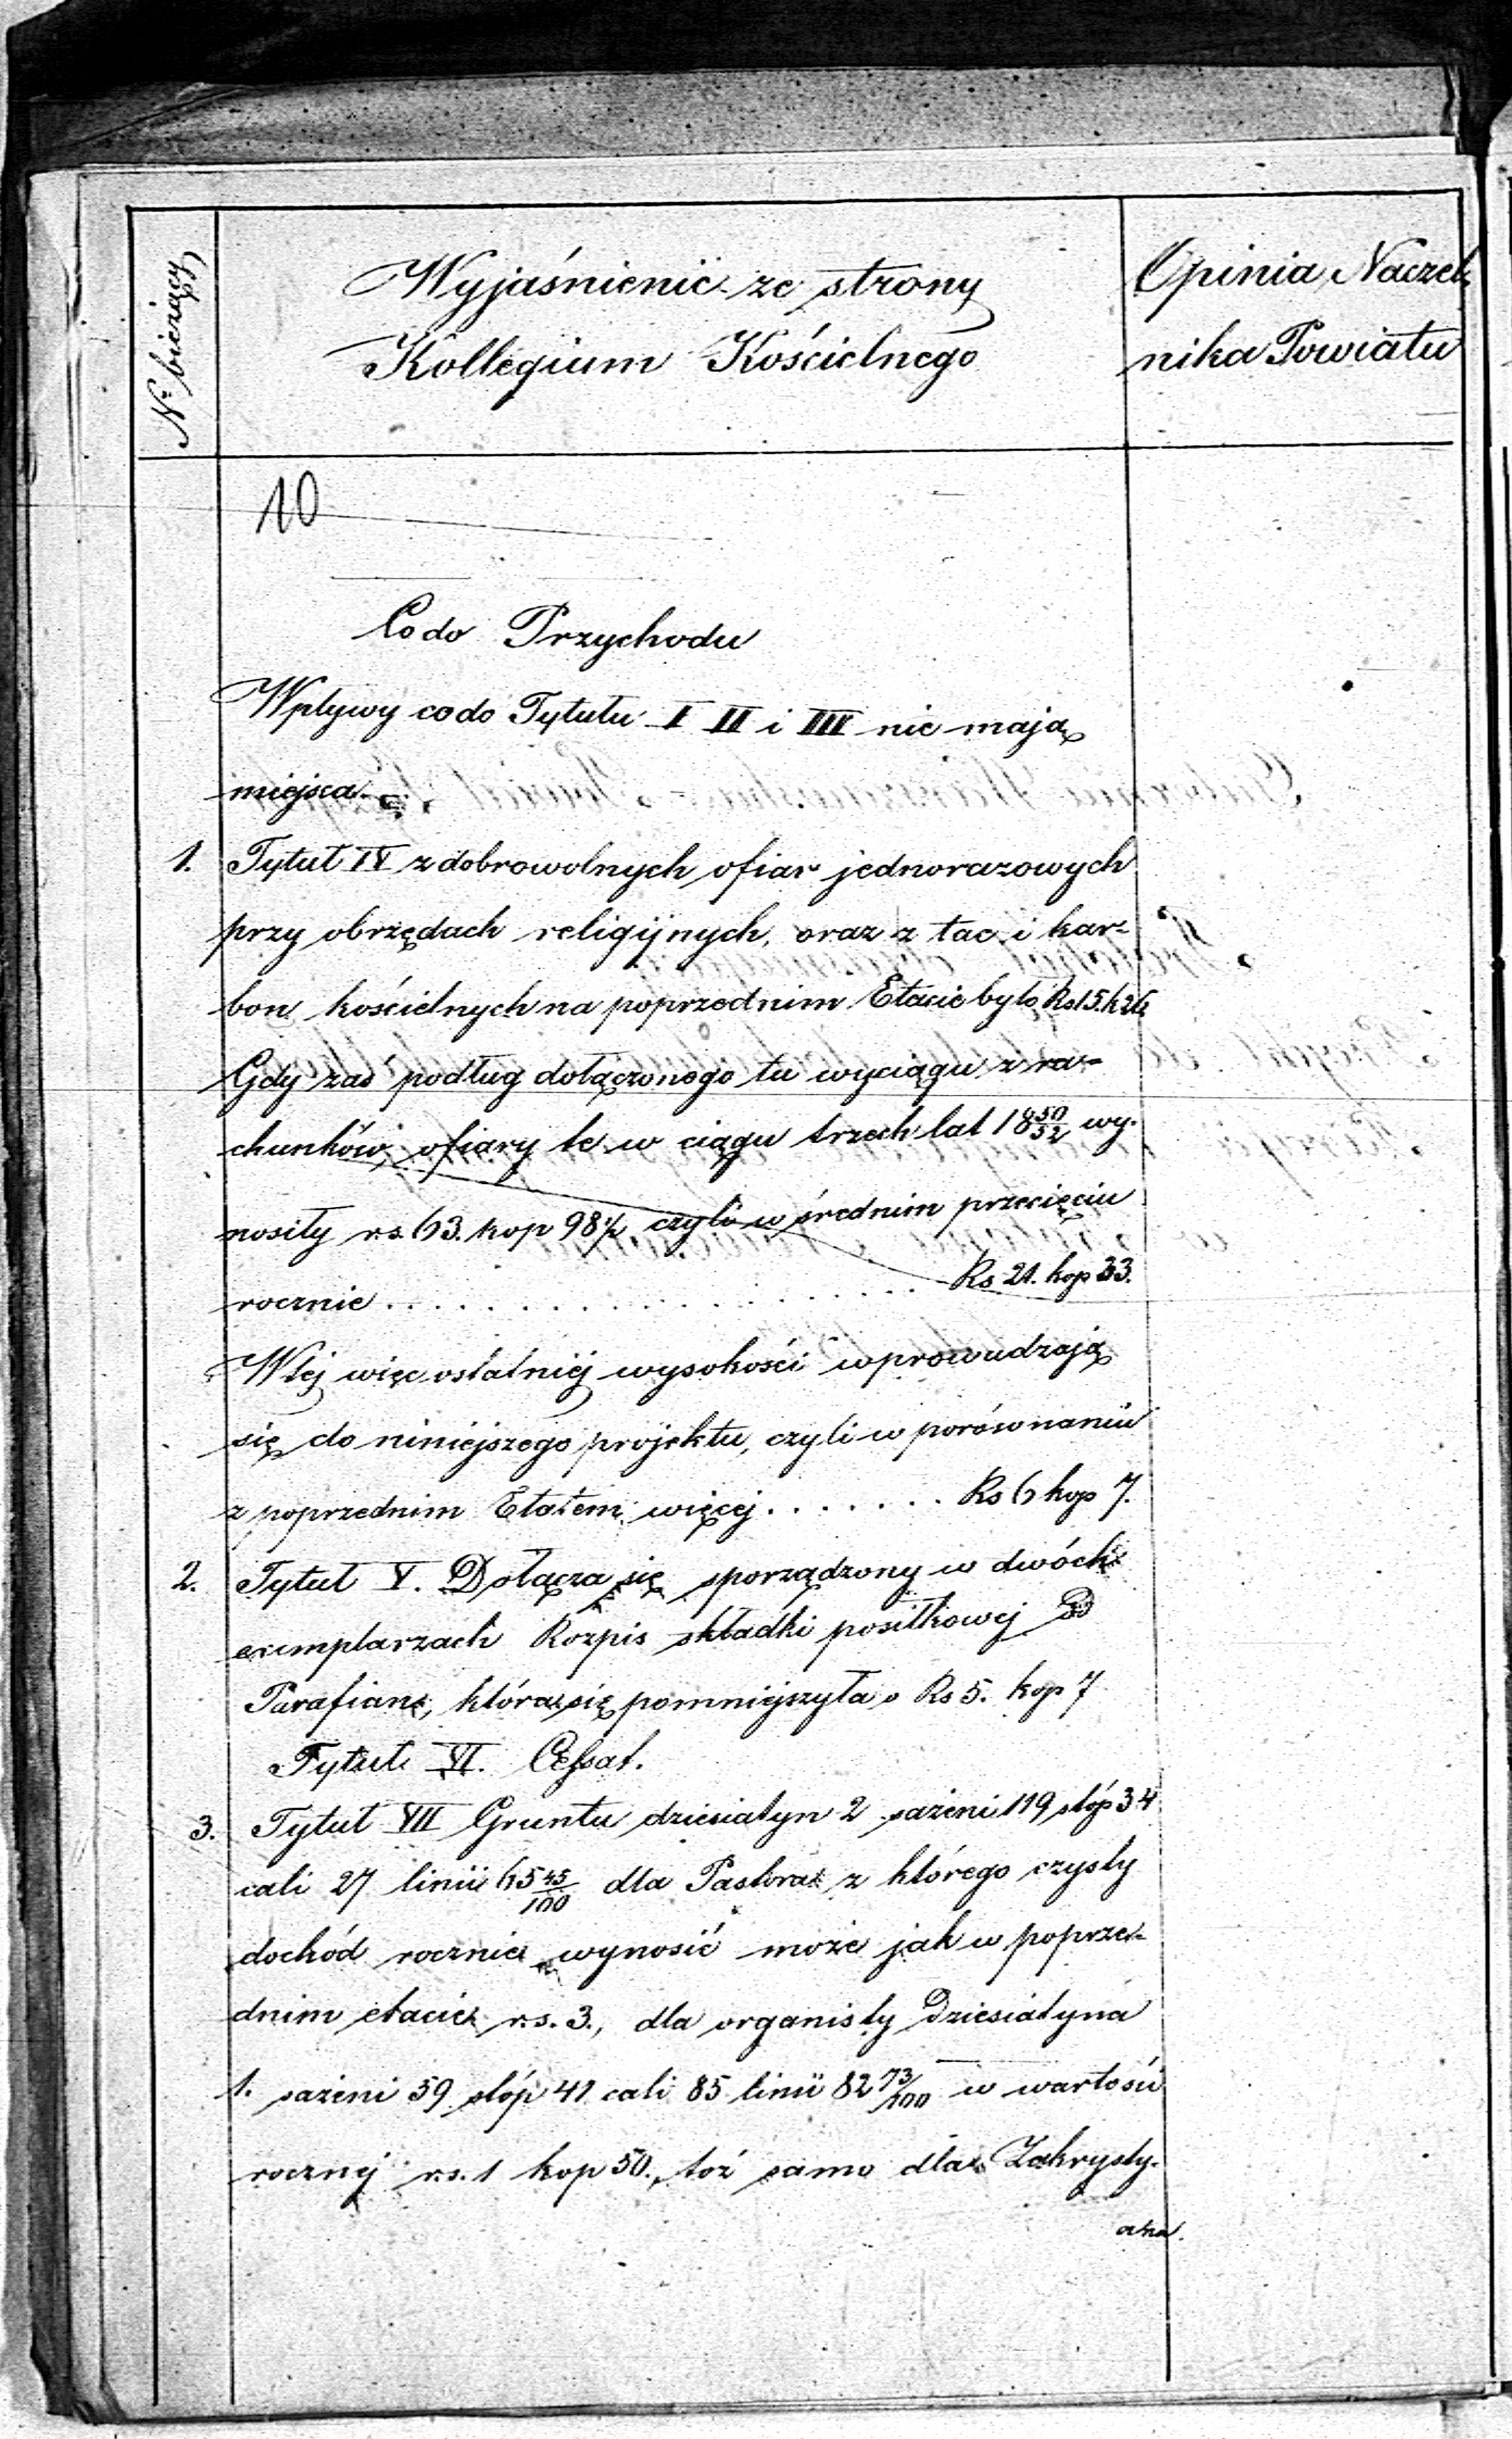 Nº bieżący
Wyjaśnienie ze strony
Kollegium Kościelnego
Opinia Naczel-
nika Powiatu
10
Co do Przychodu
Wpływy co do Tytułu I II i III nie mają
miejsca.
1. Tytuł IV z dobrowolnych ofiar jednorazowych
przy obrzędach religijnych, oraz z tac i kar-
bon kościelnych na poprzednim Etacie było Rs 15. k 26
Gdy zaś podług dołączonego tu wyciągu z ra-
chunków, ofiary te w ciągu trzech lat 18 50/52 wy-
nosiły rs. 63. kop 98½ czyli w średnim przecięciu
rocznie . . . . . . . . . . . . . . . . . . . . Rs 21. kop 33.
W tej więc ostatniej wysokości wprowadzają
się do niniejszego projektu, czyli w porównaniu
z poprzednim Etatem, więcej . . . . . . . Rs 6 kop 7.
2. Tytuł V. Dołącza się sporządzony w dwóch
exemplarzach Rozpis składki posiłkowej
Parafian, która się pomniejszyła o Rs 5. kop 7
Tytuł VI. Cessat.
3. Tytuł VII Gruntu dziesiatyn 2 sażeni 119 stóp 34
cali 27 linii 65 45/100 dla Pastora z którego czysty
dochód rocznie wynosić może jak w poprze-
dnim etacie rs. 3., dla organisty Dziesiatyna
1. sażeni 59 stóp 41 cali 85 linii 82 73/100 w wartości
rocznej rs. 1 kop 50., toż samo dla Zakrysty-
ana.